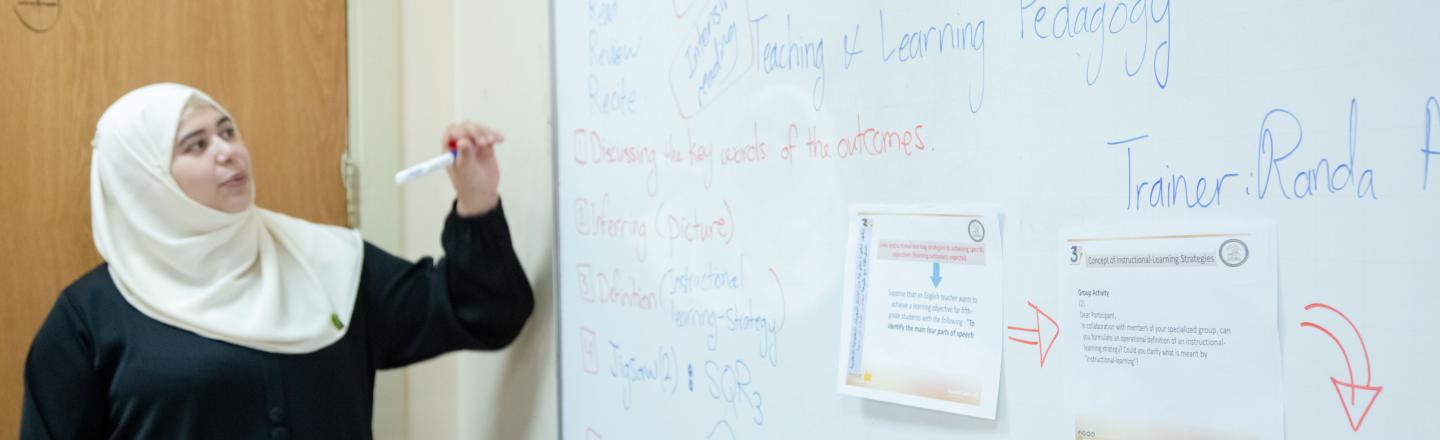 Read
Review
Recite
Intensive reading
Teaching & Learning Pedagogy
Trainer: Randa A
1 Discussing the key words of the outcomes.
2 Inferring (Picture)
3 Definition (Instructional
learning-strategy)
4 Jigsaw(2) : SQR3
objectives (learning outcomes) expected.
Suppose that an English teacher wants to
achieve a learning objective for fifth-
grade students with the following: "To
identify the main four parts of speech
37
Concept of Instructional-Learning Strategies
Group Activity
(2)
Dear Participant,
In collaboration with members of your specialized group, can
you formulate an operational definition of an instructional-
learning strategy? Could you clarify what is meant by
"instructional-learning"?